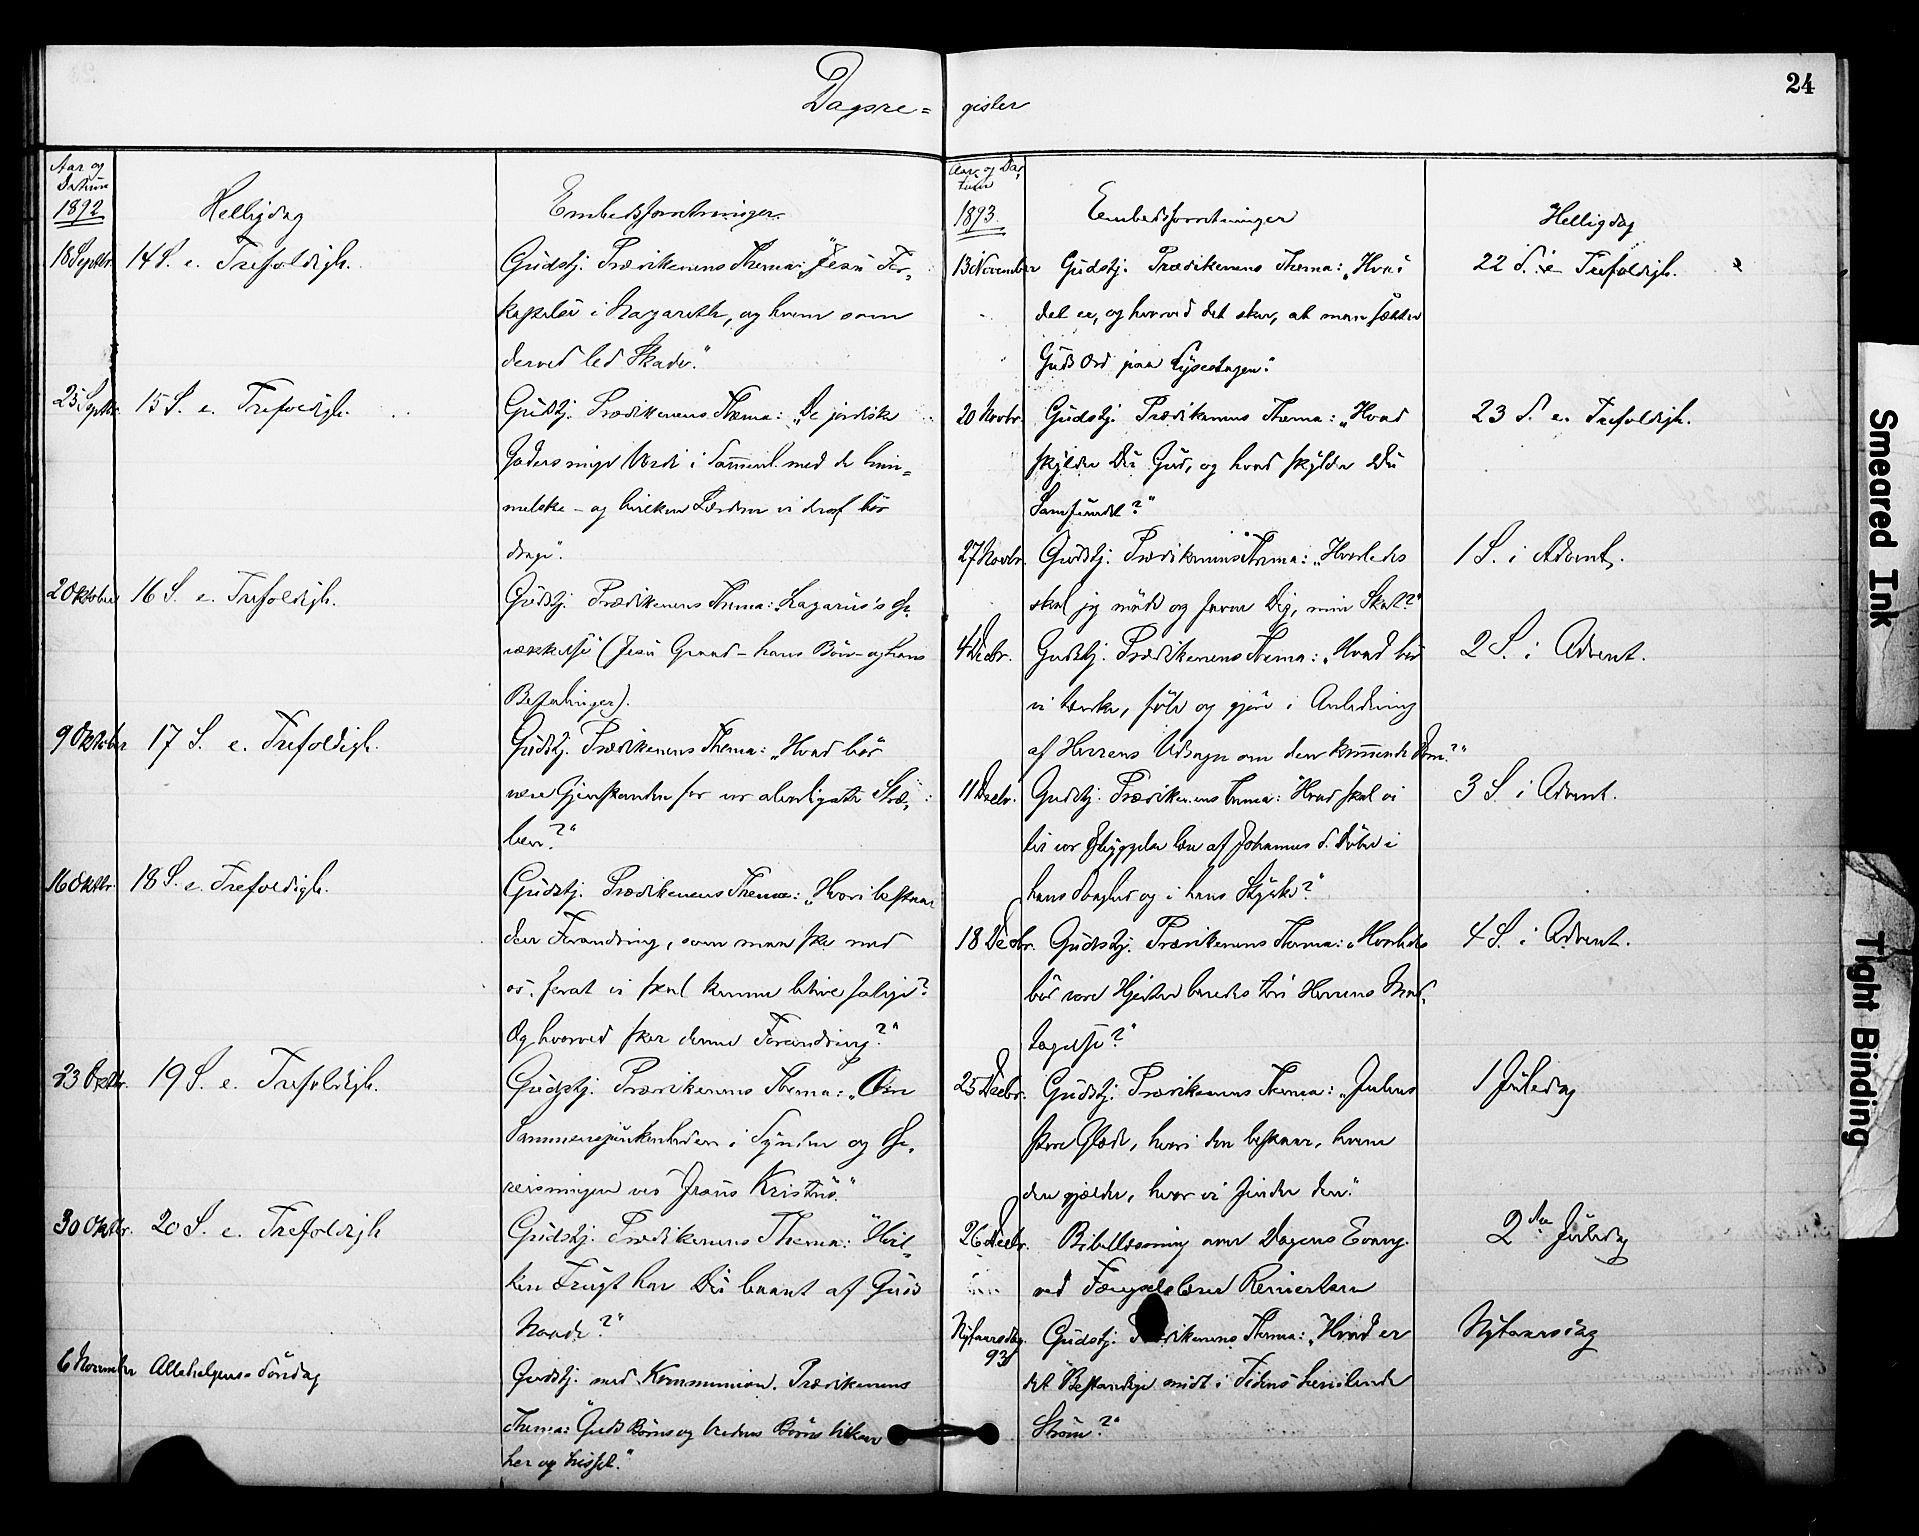 Dagsre=
gister
24
Aar og
Datum
1892
Helligdag
Embedsforretninger
18 Septbr. 14 S. e. Trefoldigh. Gudstj. Prædikenens Thema: "Jesu For-
kastelse i Nazareth, og hvem som
derved led Skade."
25 Septbr. 15 S. e. Trefoldigh. Gudstj. Prædikenens Thema: "De jordiske
Goders ringe Værdi i Sammenl. med de him=
melske - og hvilken Lærdom vi deraf bør
drage".
2 Oktober 16 S. e. Trefoldigh. Gudstj. Prædikenens Thema: Lazarus's Op-
vækkelse (Jesu Graad - hans Bön - og hans
Befalinger).
9 Oktober 17 S. e. Trefoldigh. Gudstj. Prædikenens Thema: "Hvad bör
være Gjenstanden for vor alvorligste Stræ-
ben?"
16 Oktbr. 18 S. e. Trefoldigh. Gudstj. Prædikenens Thema: "Hvori bestaar
den Forandring, som maa ske med
os, forat vi skal kunne blive salige?
Og hvorved sker denne Forandring?"
23 Oktbr. 19 S. e. Trefoldigh. Gudstj. Prædikenens Thema: "Om
Sammensjunkenheden i Synden og Op-
reisningen ved Jesus Kristus."
30 Oktbr. 20 S. e. Trefoldigh Gudstj. Prædikenens Thema: "Hvil-
ken Frugt har Du baaret af Guds
Naade?"
6 November Allehelgens-Söndag Gudstj. med Kommunion. Prædikenens
Thema: "Guds Börns og Verdens Börns Vilkaar
her og hisset."
Aar og Da-
tum
1893.
Embedsforretninger
Helligdag
13 November Gudstj. Prædikenens Thema: "Hvad 22 S. e Trefoldigh.
det er, og hvorved det sker, at man sætter
Guds Ord paa Lysestagen."
20 Novbr. Gudstj. Prædikenens Thema: "Hvad 23 S. e. Trefoldigh.
skylder Du Gud, og hvad skylder Du
Samfundet?"
27 Novbr. Gudstj. Prædikenens Thema: "Hvorledes 1 S. i Advent.
skal jeg möde og favne Dig, min Skat?"
4 Decbr. Gudstj. Prædikenens Thema: "Hvad bör 2 S. i Advent.
vi tænke, föle og gjöre i Anledning
af Herrens Udsagn om den kommende Dom?"
11 Decbr. Gudstj. Prædikenens Thema: "Hvad skal vi 3 S. i Advent.
til vor Opbyggelse lære af Johannes d. Döber i
hans Svaghed og i hans Styrke?"
18 Decbr. Gudstj. Prædikenens Thema: "Hvorledes 4 S. i Advent.
bör vore Hjerter beredes til Herrens Mod-
tagelse?"
25 Decbr. Gudstj. Prædikenens Thema: "Julens 1 Juledag
store Glæde, hvori den bestaar, hvem
den gjælder, hvor vi finder den."
26 Decbr. Bibellæsning over Dagens Evang. 2den Juledag
ved Fængselslærer Reinertsen
Nytaarsdag Gudstj. Prædikenens Thema: "Hvad er Nytaarsdag
93
det Bestandige midt i Tidens henilende
Ström?"
Smeared Ink
Tight Binding